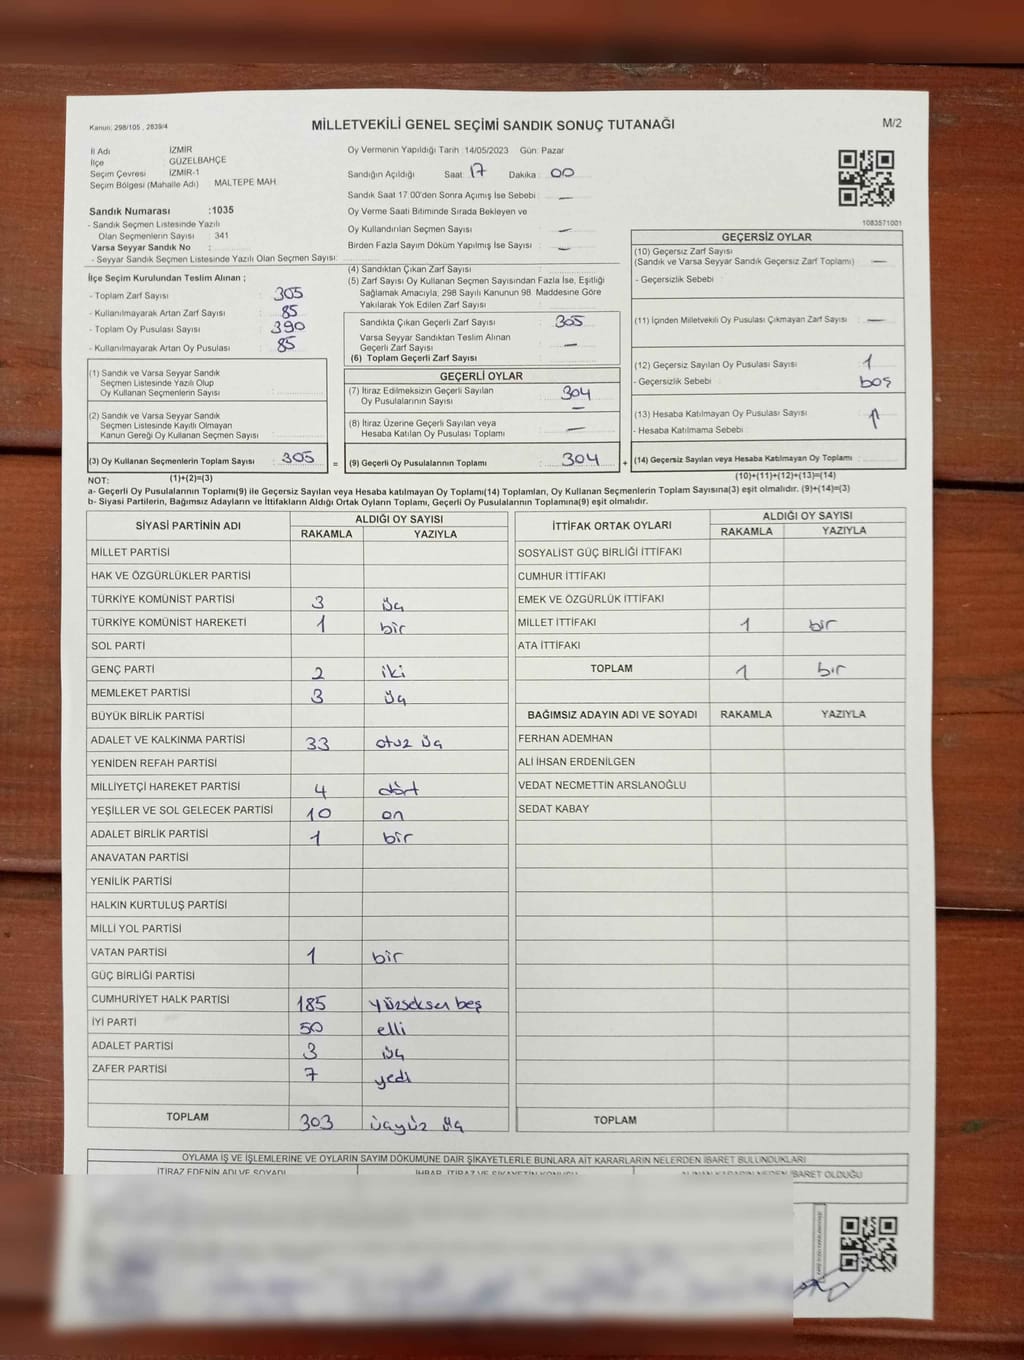 Kanun: 298/105 , 2839/4
MİLLETVEKİLİ GENEL SEÇİMİ SANDIK SONUÇ TUTANAĞI
M/2
İl Adı İZMİR
İlçe GÜZELBAHÇE
Seçim Çevresi İZMİR-1
Seçim Bölgesi (Mahalle Adı) MALTEPE MAH.
Oy Vermenin Yapıldığı Tarih :14/05/2023 Gün: Pazar
Sandığın Açıldığı Saat: 17 Dakika : 00
Sandık Saat 17:00'den Sonra Açımış İse Sebebi : —
Oy Verme Saati Bitiminde Sırada Bekleyen ve
Oy Kullandırılan Seçmen Sayısı —
Birden Fazla Sayım Döküm Yapılmış İse Sayısı : —
1083571001
Sandık Numarası :1035
- Sandık Seçmen Listesinde Yazılı
Olan Seçmenlerin Sayısı : 341
Varsa Seyyar Sandık No :
- Seyyar Sandık Seçmen Listesinde Yazılı Olan Seçmen Sayısı:
İlçe Seçim Kurulundan Teslim Alınan ;
- Toplam Zarf Sayısı : 305
- Kullanılmayarak Artan Zarf Sayısı : 85
- Toplam Oy Pusulası Sayısı : 390
- Kullanılmayarak Artan Oy Pusulası : 85
(1) Sandık ve Varsa Seyyar Sandık
Seçmen Listesinde Yazılı Olup
Oy Kullanan Seçmenlerin Sayısı :
(2) Sandık ve Varsa Seyyar Sandık
Seçmen Listesinde Kayıtlı Olmayan
Kanun Gereği Oy Kullanan Seçmen Sayısı :
(3) Oy Kullanan Seçmenlerin Toplam Sayısı : 305
(1)+(2)=(3)
(4) Sandıktan Çıkan Zarf Sayısı :
(5) Zarf Sayısı Oy Kullanan Seçmen Sayısından Fazla İse, Eşitliği
Sağlamak Amacıyla, 298 Sayılı Kanunun 98. Maddesine Göre
Yakılarak Yok Edilen Zarf Sayısı :
Sandıkta Çıkan Geçerli Zarf Sayısı : 305
Varsa Seyyar Sandıktan Teslim Alınan
Geçerli Zarf Sayısı : —
(6) Toplam Geçerli Zarf Sayısı :
GEÇERLİ OYLAR
(7) İtiraz Edilmeksizin Geçerli Sayılan
Oy Pusulalarının Sayısı : 304
(8) İtiraz Üzerine Geçerli Sayılan veya
Hesaba Katılan Oy Pusulası Toplamı : —
= (9) Geçerli Oy Pusulalarının Toplamı : 304 +
GEÇERSİZ OYLAR
(10) Geçersiz Zarf Sayısı
(Sandık ve Varsa Seyyar Sandık Geçersiz Zarf Toplamı) : —
- Geçersizlik Sebebi :
(11) İçinden Milletvekili Oy Pusulası Çıkmayan Zarf Sayısı : —
(12) Geçersiz Sayılan Oy Pusulası Sayısı : 1
- Geçersizlik Sebebi : boş
(13) Hesaba Katılmayan Oy Pusulası Sayısı :
- Hesaba Katılmama Sebebi :
(14) Geçersiz Sayılan veya Hesaba Katılmayan Oy Toplamı :
(10)+(11)+(12)+(13)=(14)
NOT:
a- Geçerli Oy Pusulalarının Toplamı(9) ile Geçersiz Sayılan veya Hesaba katılmayan Oy Toplamı(14) Toplamları, Oy Kullanan Seçmenlerin Toplam Sayısına(3) eşit olmalıdır. (9)+(14)=(3)
b- Siyasi Partilerin, Bağımsız Adayların ve İttifakların Aldığı Ortak Oyların Toplamı, Geçerli Oy Pusulalarının Toplamına(9) eşit olmalıdır.
SİYASİ PARTİNİN ADI ALDIĞI OY SAYISI
RAKAMLA YAZIYLA
MİLLET PARTİSİ
HAK VE ÖZGÜRLÜKLER PARTİSİ
TÜRKİYE KOMÜNİST PARTİSİ 3 üç
TÜRKİYE KOMÜNİST HAREKETİ 1 bir
SOL PARTİ
GENÇ PARTİ 2 iki
MEMLEKET PARTİSİ 3 üç
BÜYÜK BİRLİK PARTİSİ
ADALET VE KALKINMA PARTİSİ 33 otuz üç
YENİDEN REFAH PARTİSİ
MİLLİYETÇİ HAREKET PARTİSİ 4 dört
YEŞİLLER VE SOL GELECEK PARTİSİ 10 on
ADALET BİRLİK PARTİSİ 1 bir
ANAVATAN PARTİSİ
YENİLİK PARTİSİ
HALKIN KURTULUŞ PARTİSİ
MİLLİ YOL PARTİSİ
VATAN PARTİSİ 1 bir
GÜÇ BİRLİĞİ PARTİSİ
CUMHURİYET HALK PARTİSİ 185 yüzseksen beş
İYİ PARTİ 50 elli
ADALET PARTİSİ 3 üç
ZAFER PARTİSİ 7 yedi
TOPLAM 303 üçyüz üç
İTTİFAK ORTAK OYLARI ALDIĞI OY SAYISI
RAKAMLA YAZIYLA
SOSYALİST GÜÇ BİRLİĞİ İTTİFAKI
CUMHUR İTTİFAKI
EMEK VE ÖZGÜRLÜK İTTİFAKI
MİLLET İTTİFAKI 1 bir
ATA İTTİFAKI
TOPLAM 1 bir
BAĞIMSIZ ADAYIN ADI VE SOYADI RAKAMLA YAZIYLA
FERHAN ADEMHAN
ALİ İHSAN ERDENİLGEN
VEDAT NECMETTİN ARSLANOĞLU
SEDAT KABAY
TOPLAM
OYLAMA İŞ VE İŞLEMLERİNE VE OYLARIN SAYIM DÖKÜMÜNE DAİR ŞİKAYETLERLE BUNLARA AİT KARARLARIN NELERDEN İBARET BULUNDUKLARI
İTİRAZ EDENİN ADI VE SOYADI İHBAR, İTİRAZ VE ŞİKAYETİN KONUSU ALINAN KARARIN NEDEN İBARET OLDUĞU